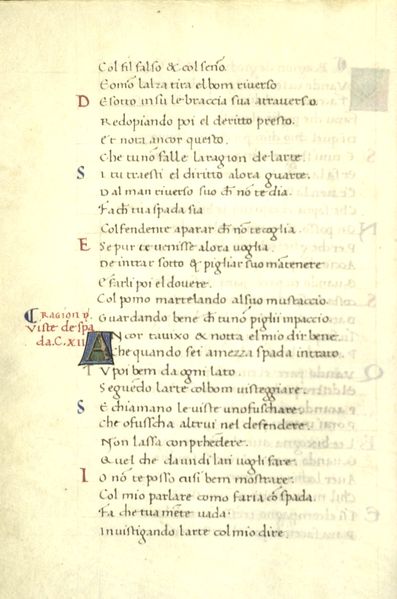 Col fil falso & col seño.
E omõ lalza tira el bom riverso
D E sotto in sù le braccia sua atraverso.
Redopiando poi el deritto presto.
Et nota ancor questo.
Che tu nõ falle la ragion de larte.
S I tu traesti el diritto alora guarte.
D al man riverso suo ch̃ nõ te dia.
Fa ch̃ tua spada sia
Col fendente aparar ch̃ nõ te coglia
E Se pur te venisse alora voglia.
De intrar sotto & pigliar suo mãtenere
E farli poi el dovere.
Col pomo martelando al suo mustaccio.
Guardando bene ch̃ tu nõ piglii impaccio.
C RAGION D.
viste de spa
da. C. XII
A Ncor tavixo & notta el mio dir bene.
Che quando sei a mezza spada intrato.
T V poi bem da ogni lato.
Seguẽdo larte col bom visteggiare.
S E chiamano le viste uno fuschare.
che ofusscha altrui nel defendere.
Non lassa conprhẽdere.
Quel che da un di lati vogli fare.
I O nõ te posso cusi bem mostrare.
Col mio parlare como faria cõ spada.
Fa che tua mẽte vada.
Investigando larte col mio dire.